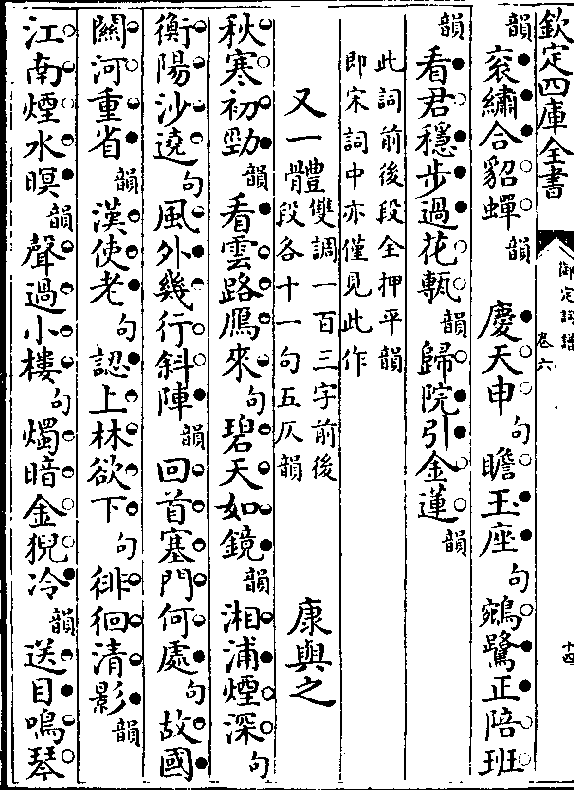 欽定四庫全書
御定詞譜
卷六
十四
韻袞繡合貂蟬韻慶天申句瞻玉座句鵷鷺正陪班
韻看君穩步過花甎韻歸院引金蓮韻
此詞前後段全押平韻
即宋詞中亦僅見此作
又一體雙調一百三字前後
段各十一句五仄韻
康與之
秋寒初勁韻看雲路鴈來句碧天如鏡韻湘浦煙深句
衡陽沙遶句風外幾行斜陣韻回首塞門何處句故國
關河重省韻漢使老句認上林欲下句徘徊清影韻
江南煙水暝韻聲過小樓句燭暗金猊冷韻送目鳴琴